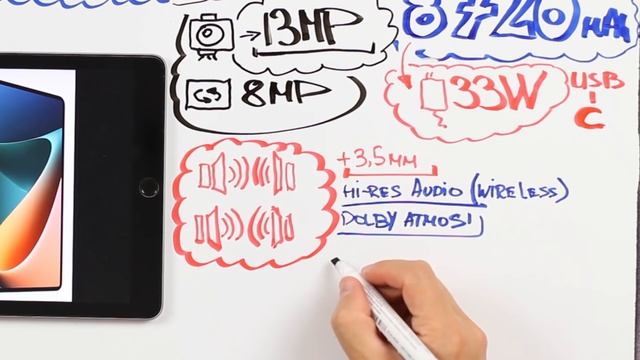 13MP
8MP
8720 mAh
33W
USB
C
+3,5мм
Hi-RES AUDIO (WIRELESS)
DOLBY ATMOS!